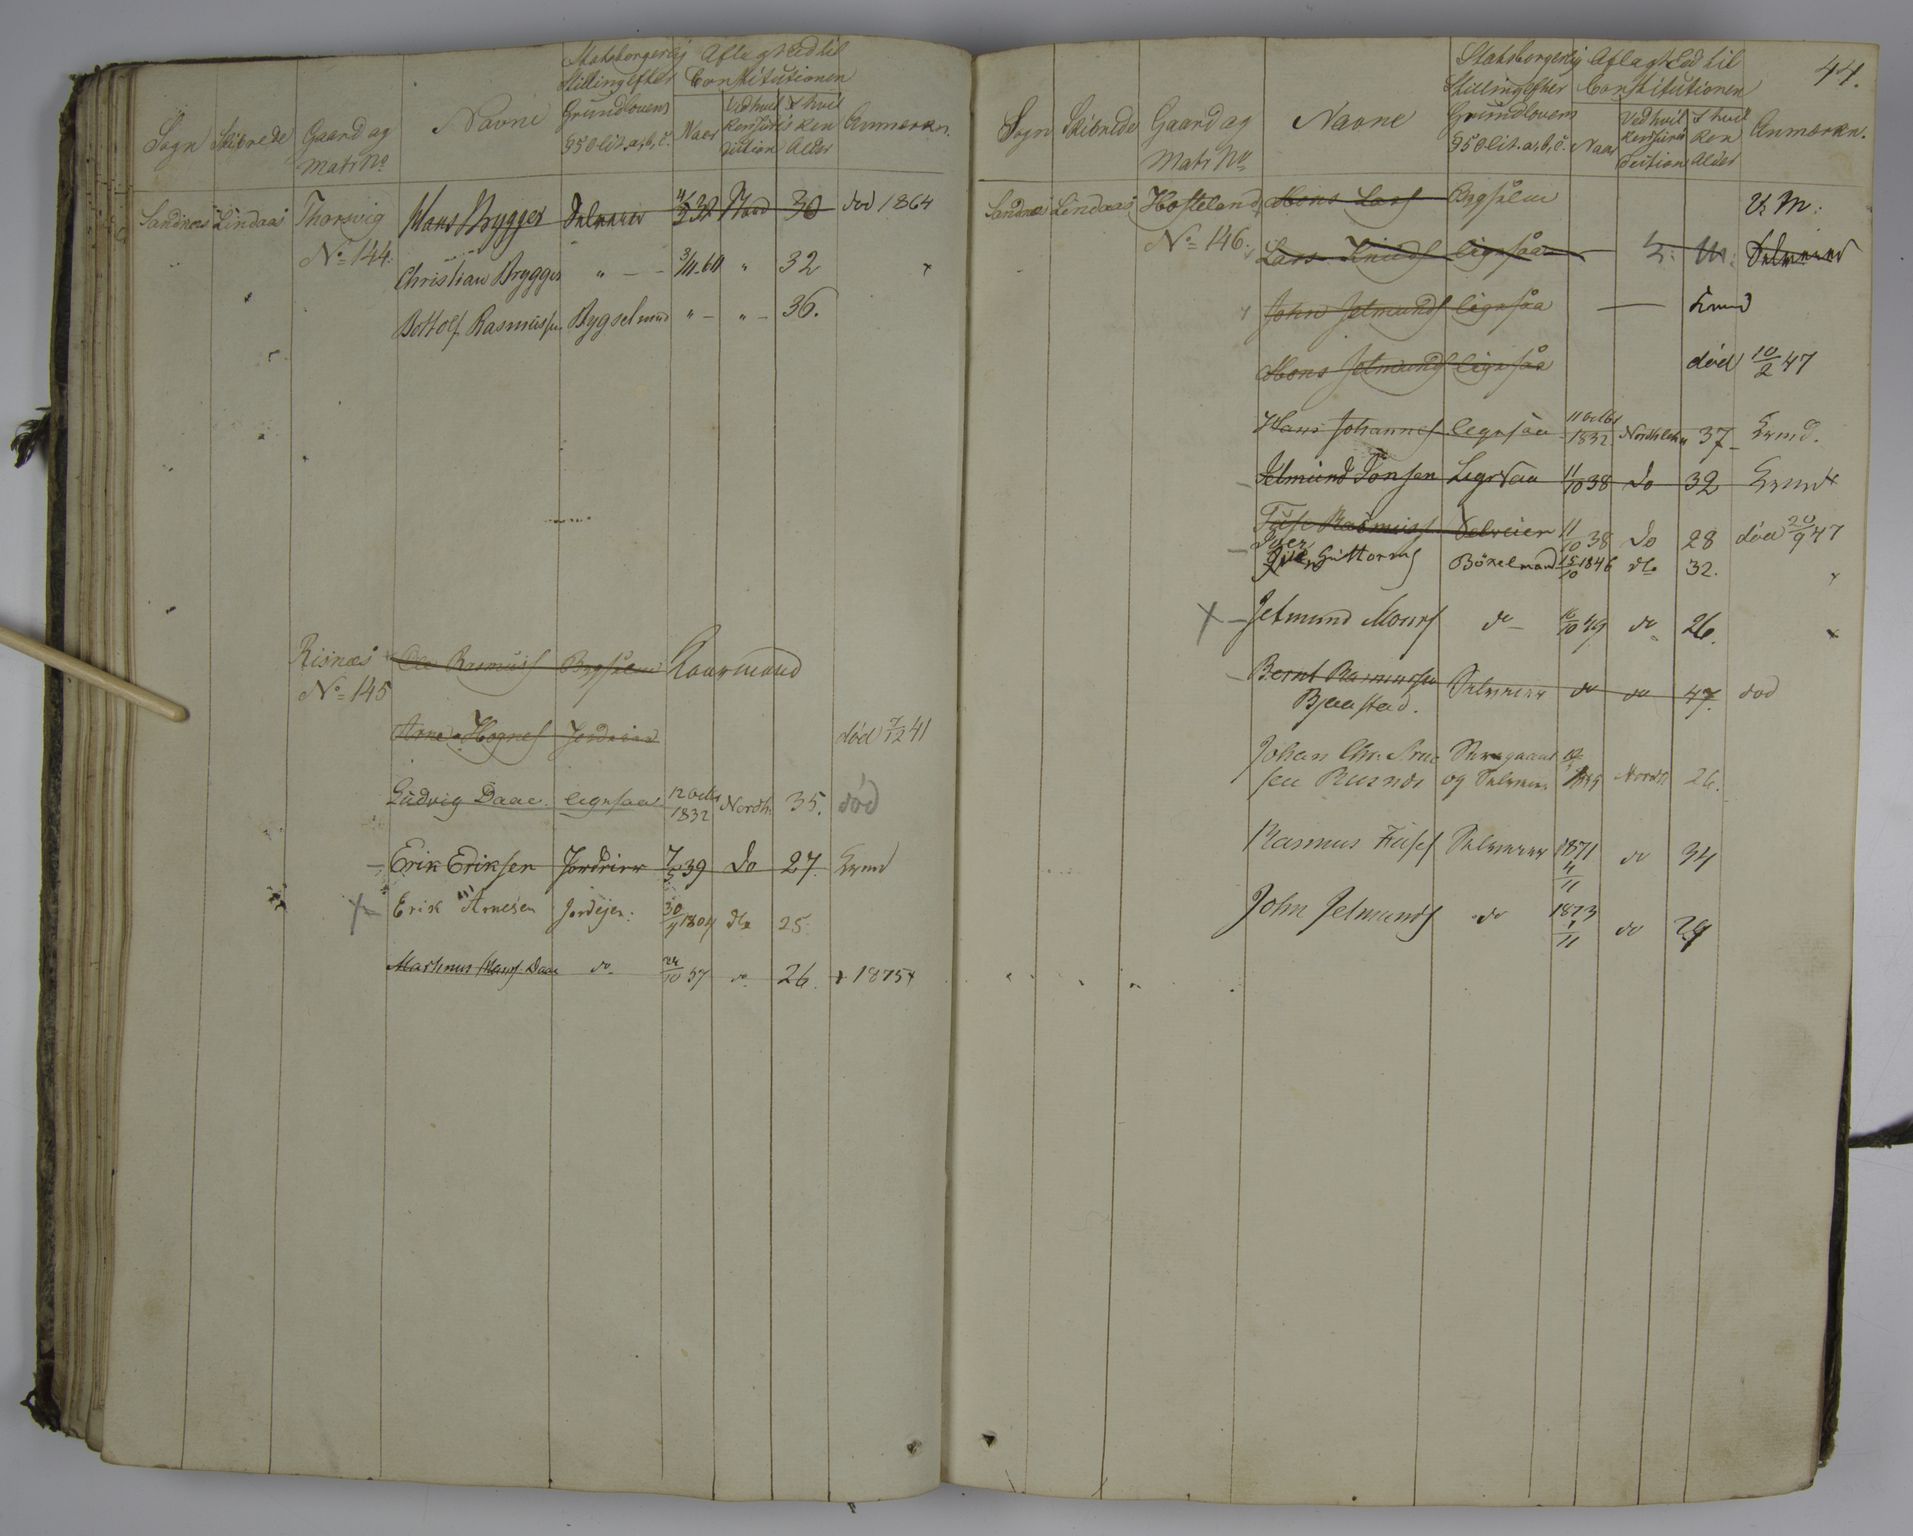 Sogn Skibrede Gaard og Matr No Navne Statsborgerlig Stilling efter Grundlovens §50 lit. a, b, c. Aflagt Eed til Constitutionen Naar Ved hvilken Jurisdiction I hvilken Alder Anmærkn.
Sandnæs Lindaas Thorsvig Hans Brygger Selveier 32 Nord 30 død 1864
No 144. Christian Brygger " 3/11.64 " 32
Bottolf Rasmussen Bygselmand " " 36.
Risnæs Ole Rasmuss Bygselm Kaarmand
No 145
Arne Hognes Jordeier død 7/12 41
Ludvig Daae. ligesaa 12 Octbr 1832 Nordh. 35. død
Erik Eriksen Jordeier 7/5 39 do 27. Rømd
Erik Arnesen Jordejer. do 25
Martinus Hanss Daae do 24/10 57 do 26. + 1875
44.
Sogn Skibrede Gaard og Matr No Navne Statsborgerlig Stilling efter Grundlovens §50 lit. a, b, c. Aflagt Eed til Constitutionen Naar Ved hvilken Jurisdiction I hvilken Alder Anmærkn.
Sandnæs Lindaas Hosteland Mons Larss Bygselm
No 146. Lars Knuds ligesaa Selveier
John Jetmunds ligesaa
Mons Jetmunds ligesaa død 10/2 47
Hans Johannes ligesaa 11 Octbr 1832 Nordhlehn 37
Jetmund Jonsen Ligesaa 11/10 38 do 32
Fuse Rasmuss. Selveier 11/10 38 do 28 død 20/9 47
Iver Guttorms Böxelmand 15/10 1846 do 32.
Jetmund Monss do 16/10 49 do 26.
Bernt Rasmussen Bjaastad. Selveier do do 47. død
Johan Chr. og Selveier Nordh. 26.
Rasmus Fuses Selveier 1871 4/11 do 34
John Jetmunds do 1873 1/11 do 29